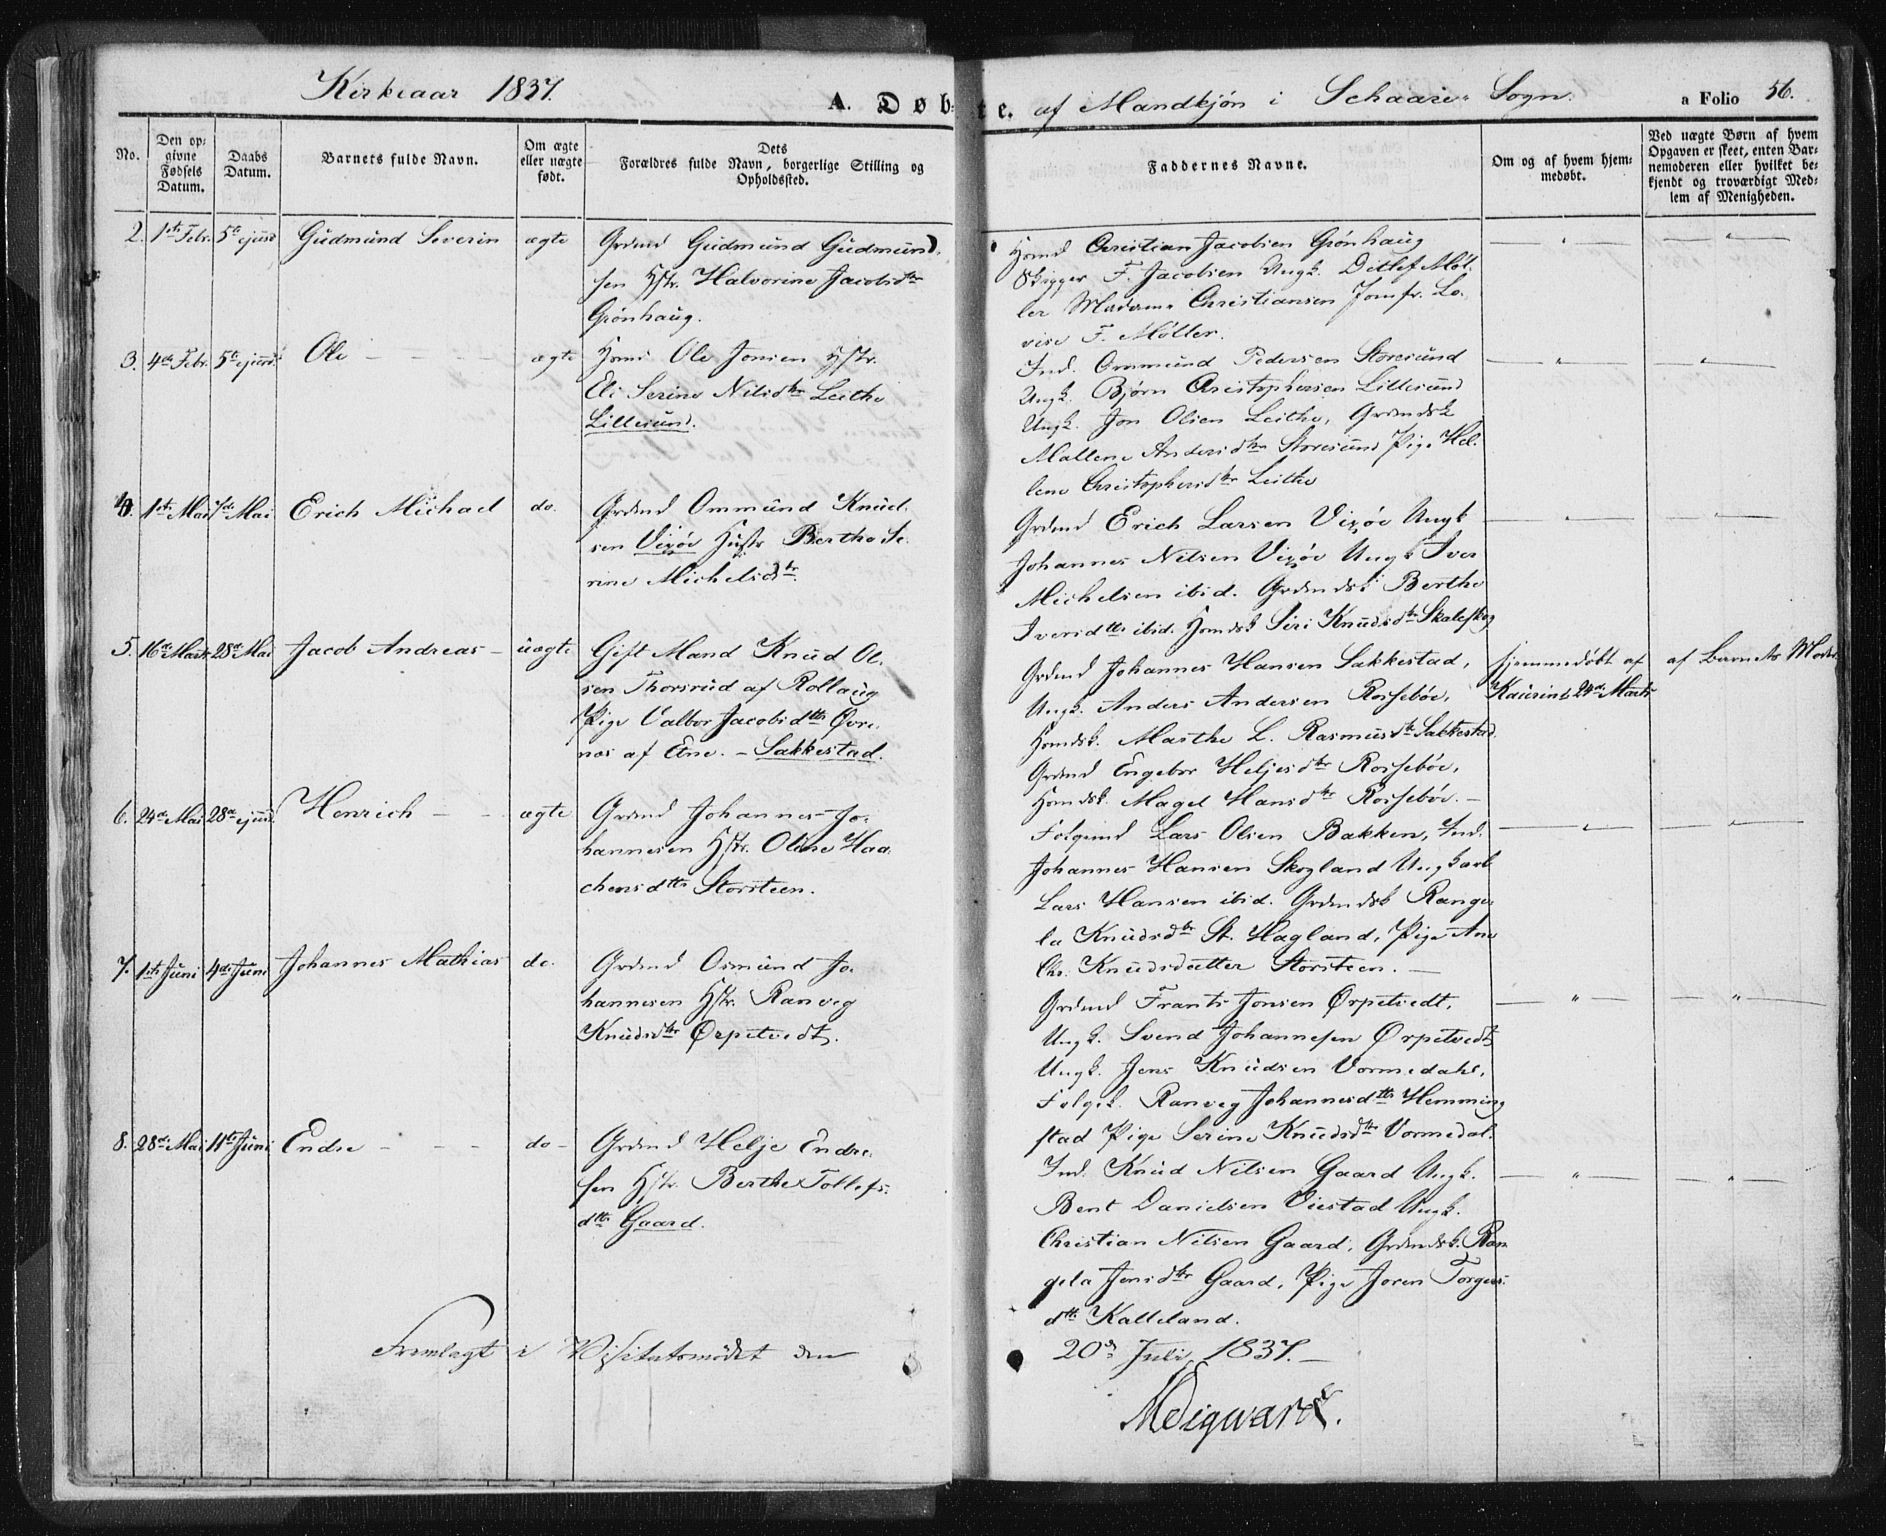 Kirkeaar 1837.
A. Døbte. af Mandkjøn i Schaare Sogn. a Folio 56.
No.
Den opgivne Fødsels Datum.
Daabs Datum.
Barnets fulde Navn.
Om ægte eller uægte født.
Dets Forældres fulde Navn, borgerlige Stilling og Opholdssted.
Faddernes Navne.
Om og af hvem hjemmedøbt.
Ved uægte Børn af hvem Opgaven er skeet, enten Barnemoderen eller hvilket bekjendt og troværdigt Medlem af Menigheden.
2. 1ste Febr. 5te ejusd Gudmund Severin ægte
Grdmd Gudmund Gudmund
sen Hstr. Halvorine Jacobsdtr
Grønhaug.
Hsmd Christian Jacobsen Grønhaug
Skipper F. Jacobsen Ungk. Ditlef Møl
ler Madame Christiansen Jomfr. Lo
vise F. Møller.
3. 4de Febr. 5te ejusd. Ole ægte
Hsmd Ole Jonsen Hstr.
Eli Serine Nilsdtr Leithe
Lillesund.
Ind. Ommund Pedersen Storesund
Ungk. Bjørn Christophersen Lillesund
Ungk. Jon Olsen Leithe, Grdmdsk
Mallene Andersdtr Storesund Pige Hel
lene Christophersdtr Leithe
4. 1ste Mai 7de Mai Erich Michael do.
Grdmd Ommund Knud
sen Vixøe Hustr Berthe Se
rine Michelsdtr.
Grdmd Erich Larsen Vixøe Ungk
Johannes Nilsen Vixøe Ungk Iver
Michelsen ibid. Grdmdsk Berthe
Iversdtr ibid. Hsmdsk Siri Knudsdtr Skaleskog
5. 16de Marts 28de Mai Jacob Andreas uægte
Gift Mand Knud Ol
sen Thorsrud af Rollaug
Pige Valbor Jacobsdtr Øvre
næs af Etne. - Sakkestad.
Grdmd Johannes Hansen Sakkestad,
Ungk. Anders Andersen Rossebøe,
Hsmdsk. Marthe L. Rasmusdtr Sakkestad.
Grdmd Engebor Heljesdtr Rossebøe,
Hsmdsk. Magel Hansdtr Rossebøe. -
hjemmedøbt af
24de Marts
af Barnets Moder
6. 24de Mai 28de ejusd. Henrich ægte
Grdmd Johannes Jo
hannesen Hstr. Oline Haa
chensdtr Storsteen.
Folgemd Lars Olsen Bakken, Ind.
Johannes Hansen Skogland Ungkarl
Lars Hansen ibid. Grdmdsk Range
la Knudsdtr St. Hagland, Pige Ane
Chr. Knudsdatter Storsteen. -
7. 1ste Juni 4de Juni Johannes Mathias do.
Grdmd Osmund Jo
hannesen Hstr. Ranveg
Knudsdtr Ørpetvedt.
Grdmd Frants Jonsen Ørpetvedt,
Ungk. Svend Johannesen Ørpetvedt
Ungk. Jens Knudsen Vormedahl,
Folgek. Ranveg Johannesdtr Hemming
stad Pige Serine Knudsdtr Vormedal.
8. 28de Mai 11te Juni Endre do
Grdmd Helje Endre
sen Hstr. Berthe Tollefs
dtr Gaard.
Ind. Knud Nilsen Gaard Ungk.
Bent Danielsen Viestad Ungk.
Christian Nilsen Gaard, Grdmdsk. Ran
gela Jensdtr Gaard, Pige Joren Torgers
dtr Kalleland.
Fremlagt i Visitatsmødet den 20de Juli 1837. -